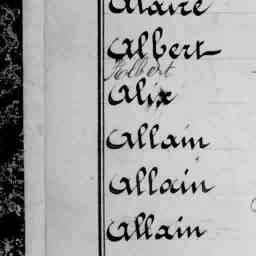 Alaire
Albert
Halbert
Alix
Allain
Allain
Allain